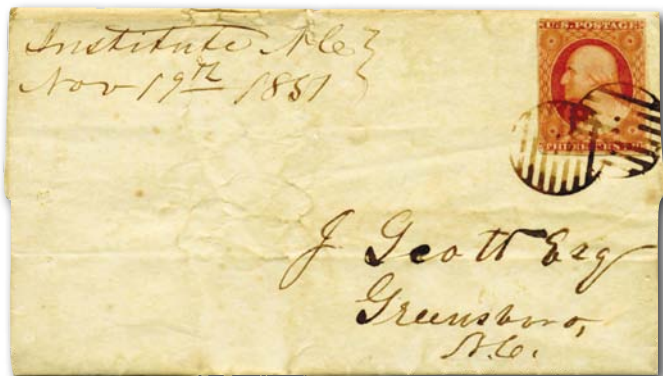 Institute N.C.
Nov 19th 1851
U.S. POSTAGE
THREE CENTS
J Scott Esq
Greensboro,
N.C.